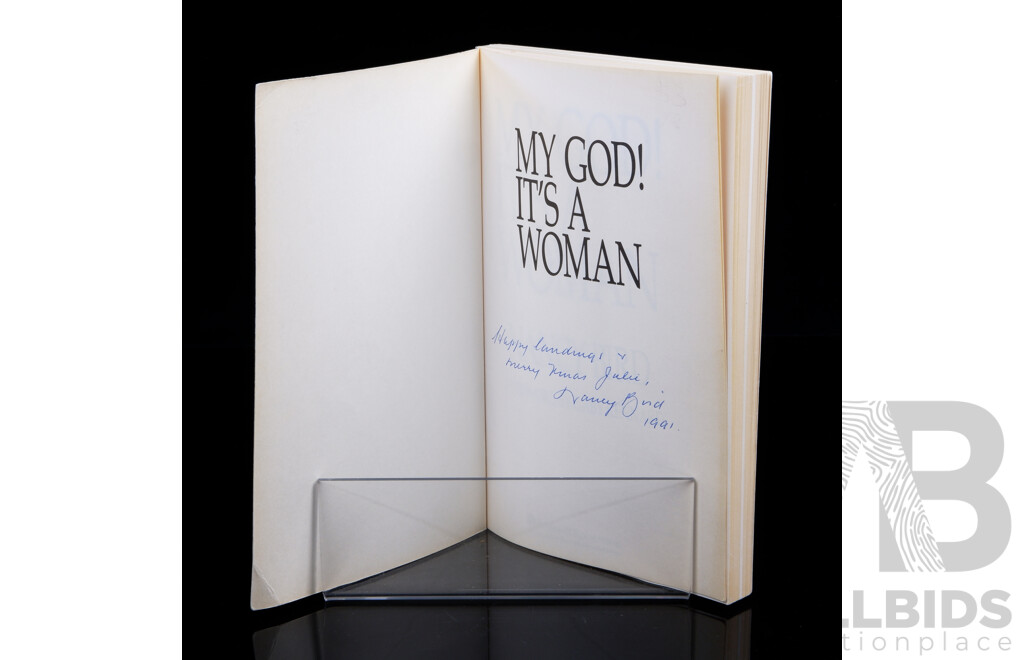 MY GOD!
IT'S A
WOMAN
Happy landings &
Merry Xmas Julie,
Nancy Bird
1991.
B
LLBIDS
ctionplace